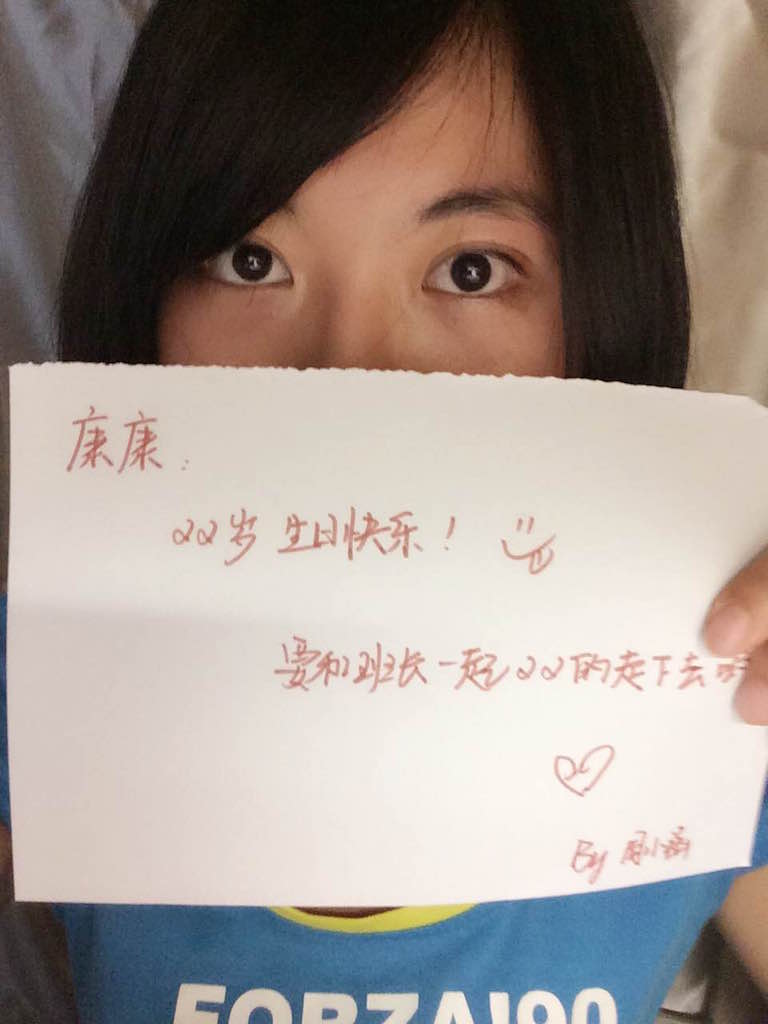 康康：
22岁 生日快乐！
要和班长一起22的走下去
By 周小
FORZA!90